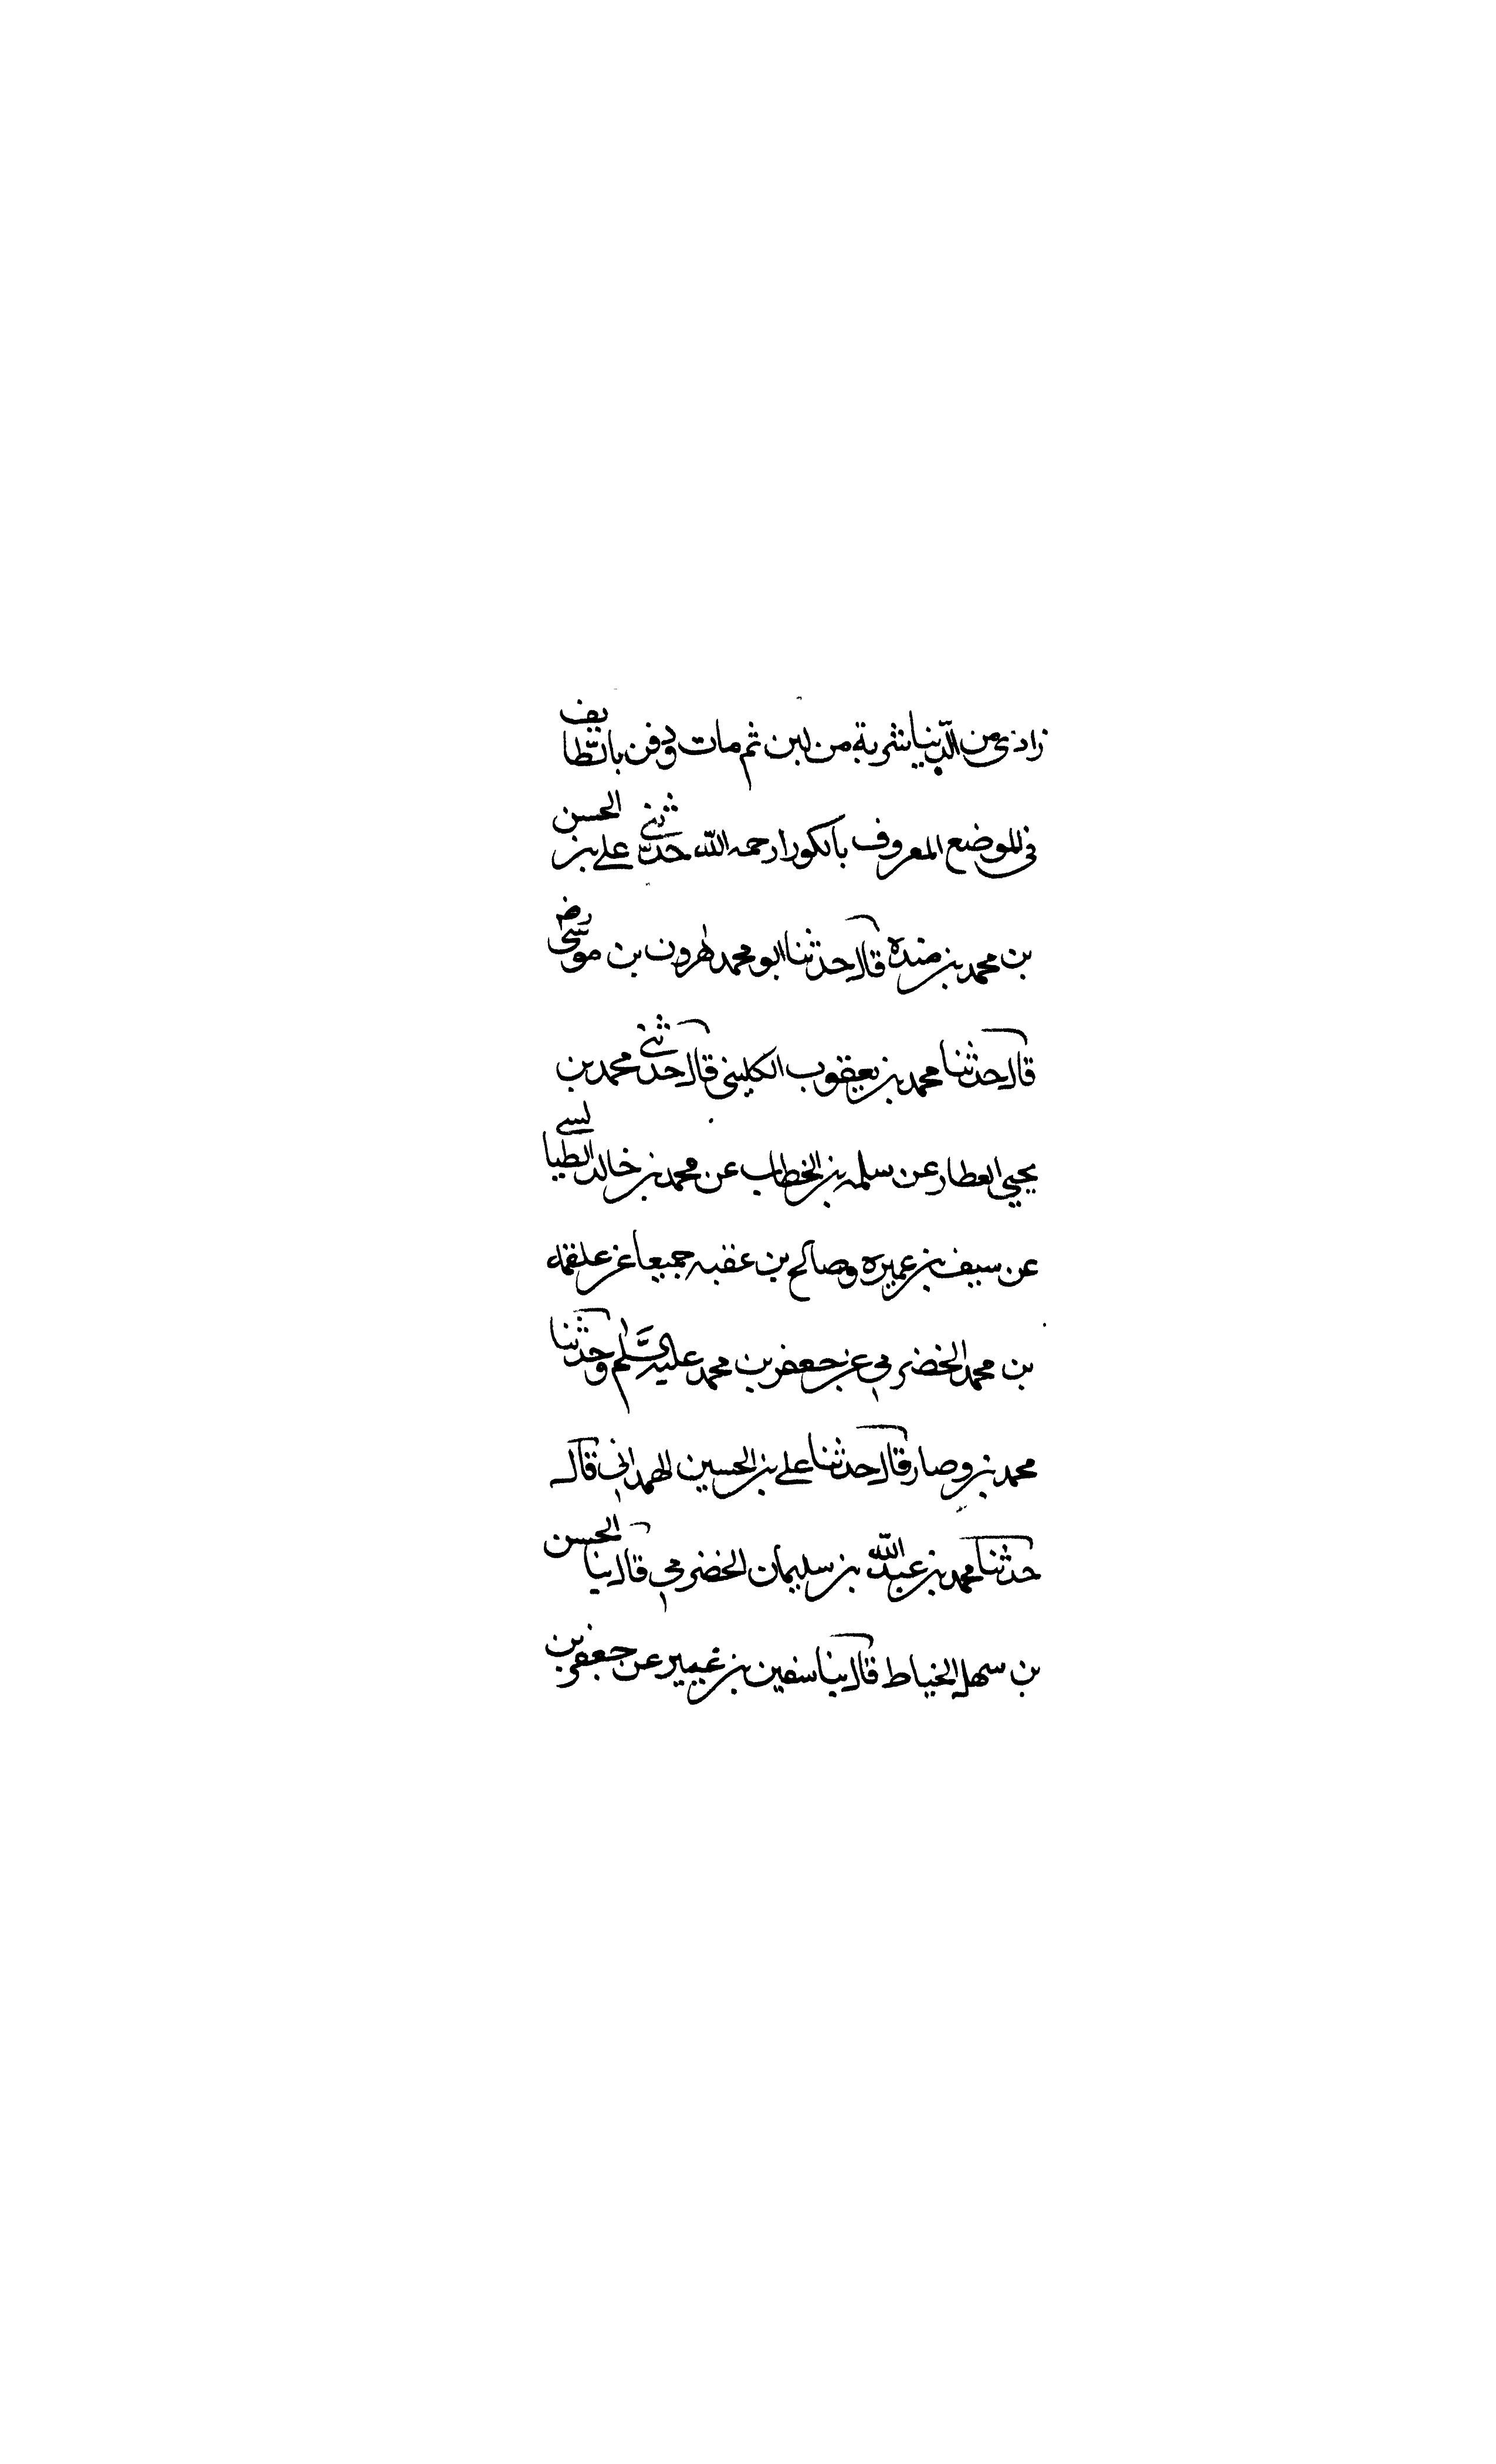 زادى من الدّنيا شربة من لبن ثم مات ودفن بالطّايف
فى الموضع المعروف بالكورا رحمه الله حدثنى على بن الحسن
بن محمد بن منده قال حدثنا ابو محمد هرون بن موسى رض
قال حدثنا محمد بن يعقوب الكلينى قال حدثنى محمد بن
يحيى العطار عن سلمه بن الخطاب عن محمد بن خالد الطيالسى
عن سيف بن عميره وصالح بن عقبه جميعا عن علقمه
بن محمد الخضرمي عن جعفر بن محمد عليه السّلم وحدثنا
محمد بن وصار قال حدثنا على بن الحسين الهمدانى قال
حدثنا محمد بن عبد الله بن سليمان الخضرمي قال بنا الحسن
بن سهل الخياط قال بنا سفين بن عيير عن جعفر بن